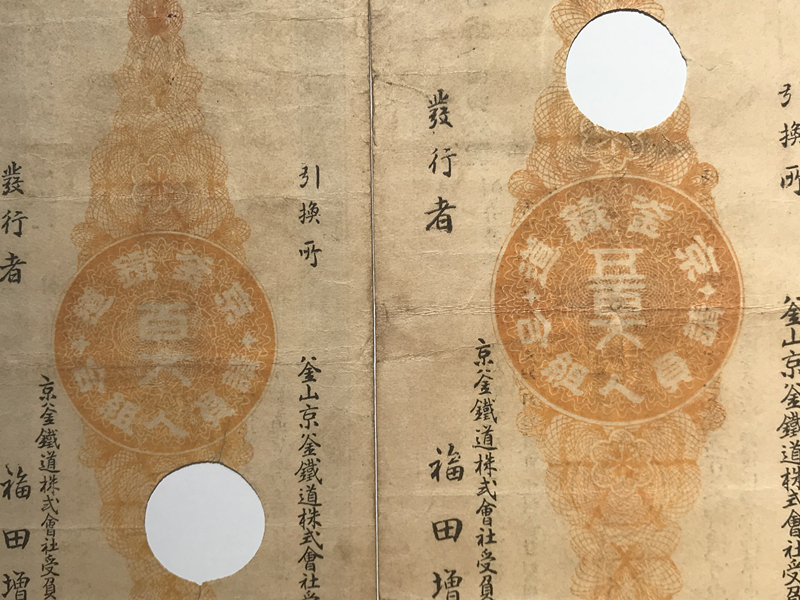 引換所
釜山京釜鐵道株式會社受負
京釜鐵道
請負人組合
五百文
發行者
京釜鐵道株式會社受負
福田增
引換所
釜山京釜鐵道株式會社受
京釜鐵道
請負人組合
百文
發行者
京釜鐵道株式會社受負
福田增